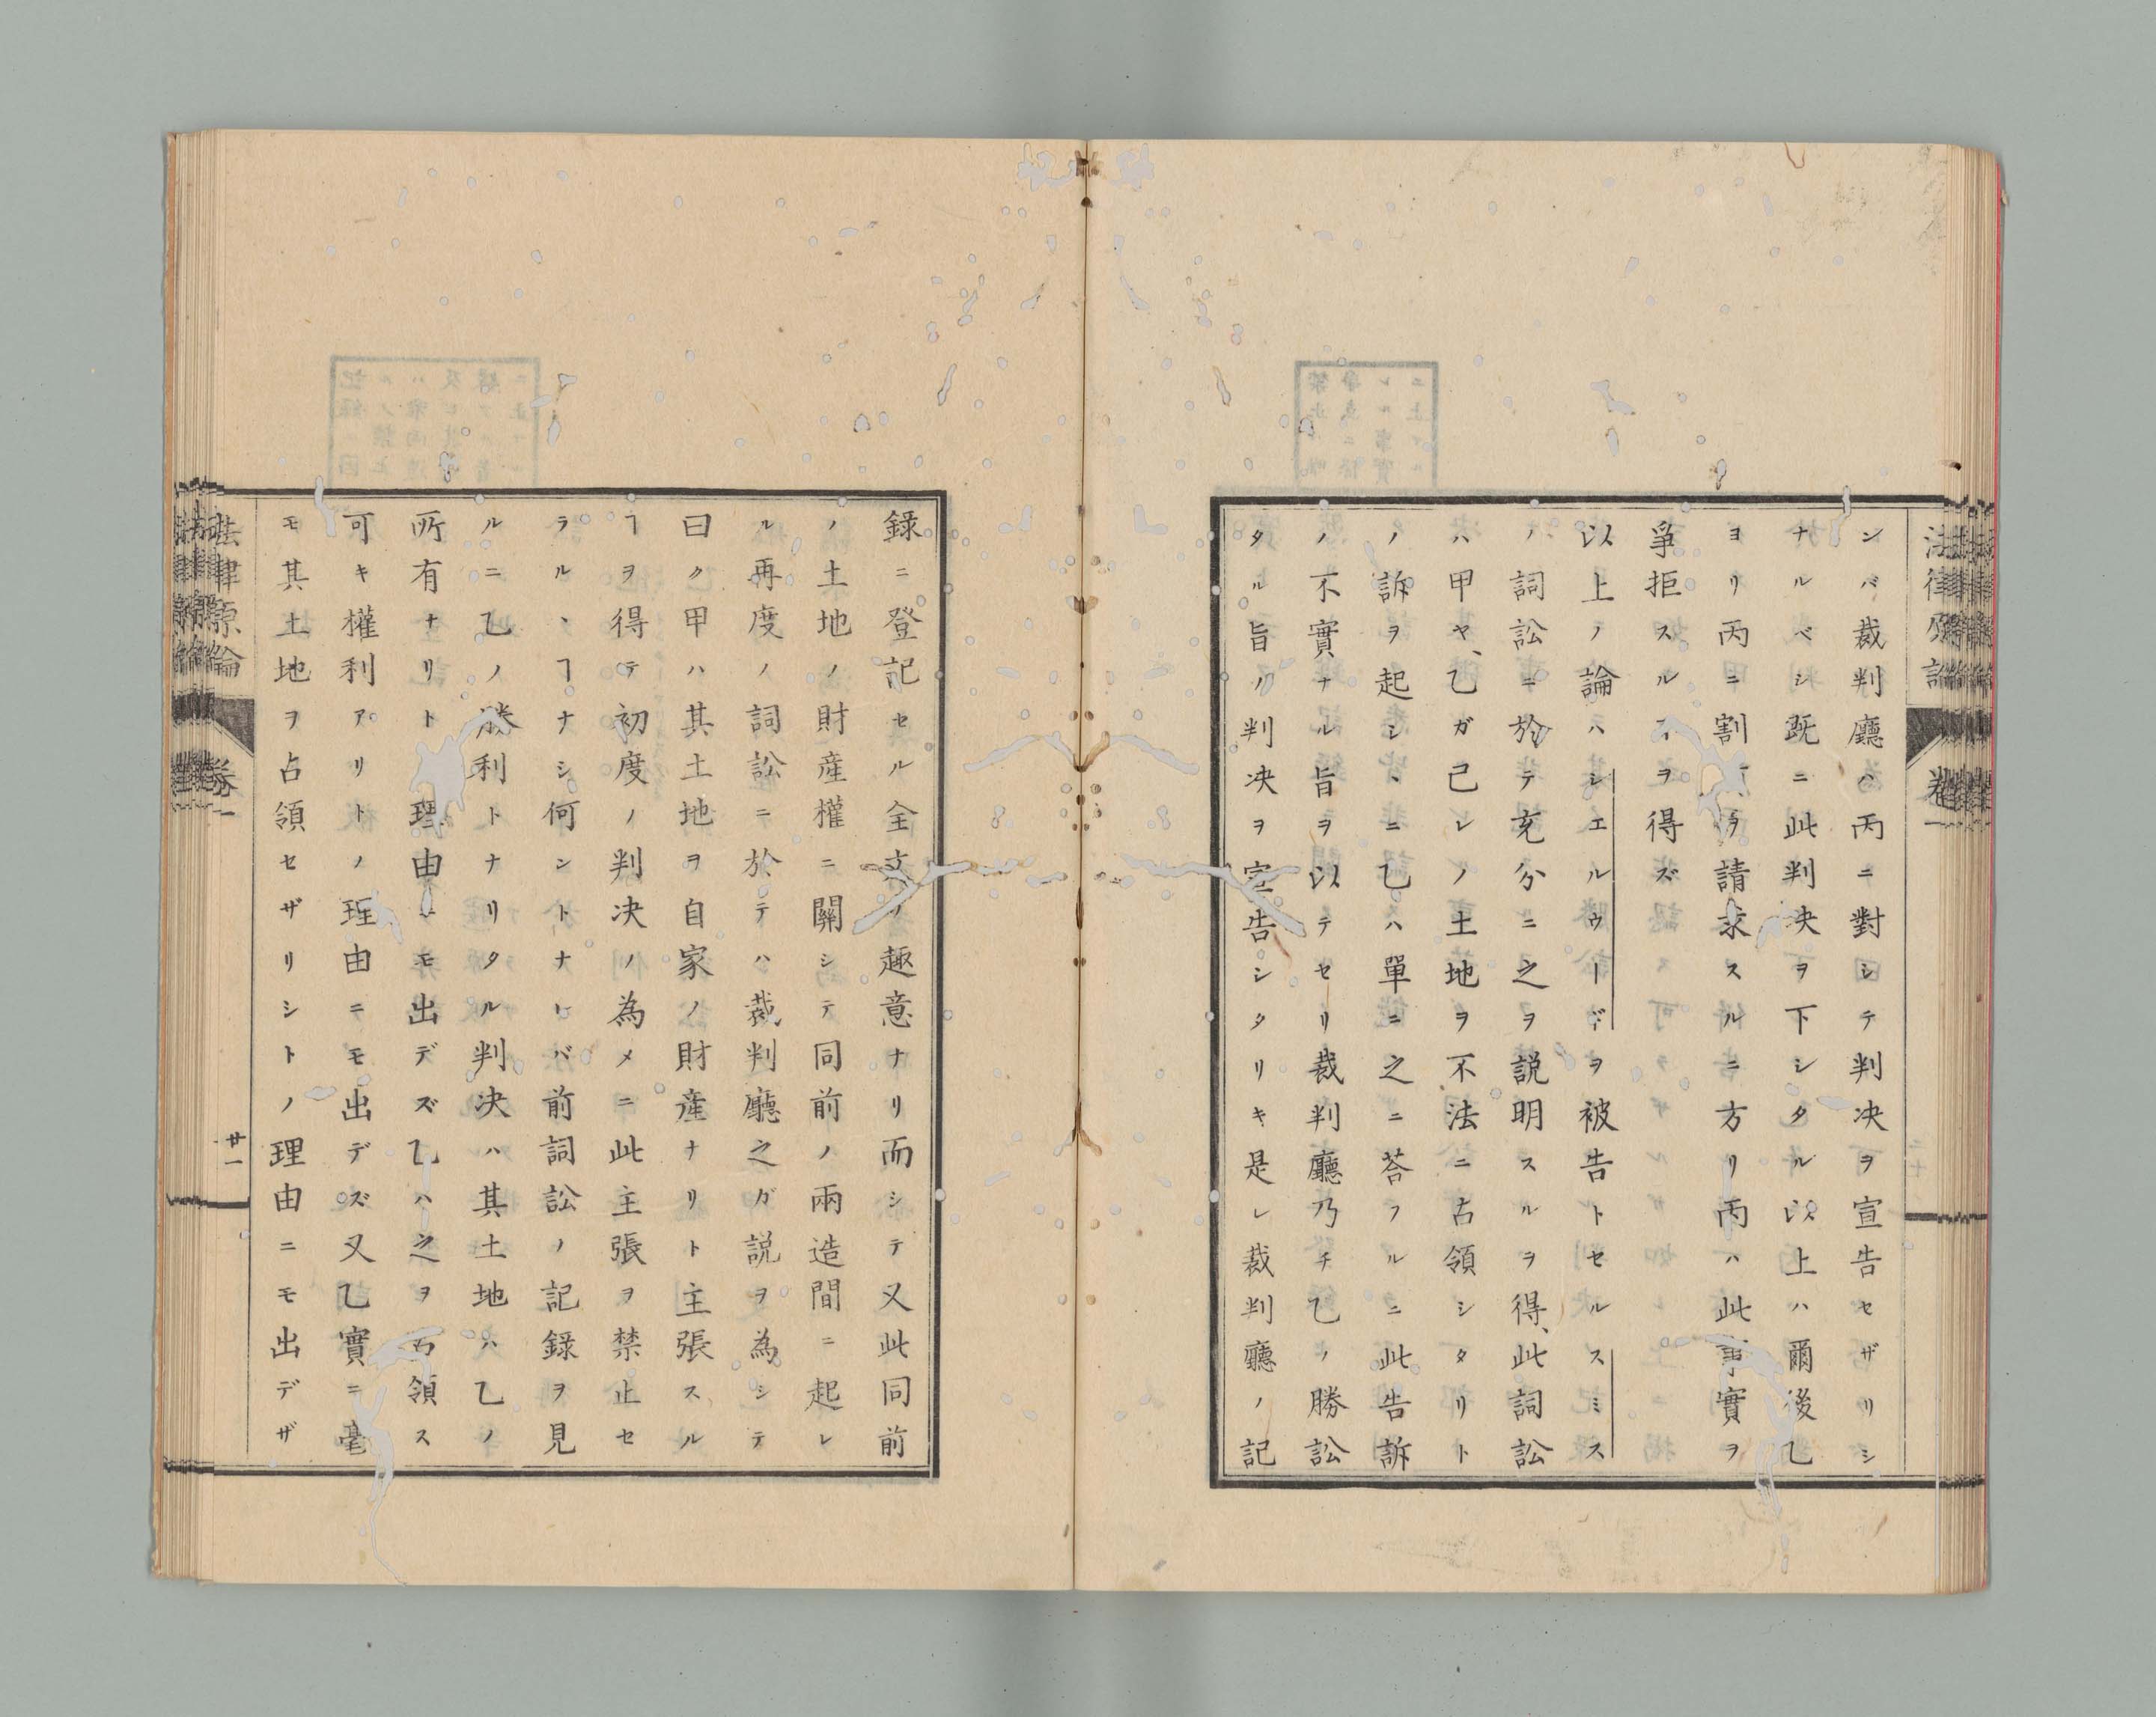 ンバ裁判廳ハ丙ニ對シテ判决ヲ宣告セザリシ
ナルベシ既ニ此判决ヲ下シタル以上ハ爾後乙
ヨリ丙ニ割ヲ請求スルニ方リ丙ハ此事實ヲ
爭拒スルヿヲ得ズ
以上ノ論ハシエルウードヲ被告トセルスミス
ノ詞訟ニ於テ充分ニ之ヲ説明スルヲ得、此詞訟
ハ甲ヤ、乙ガ己レノ土地ヲ不法ニ占領シタリト
ノ訴ヲ起シヽニ乙ハ單ニ之ニ荅フルニ此告訴
ノ不實ナル旨ヲ以テセリ裁判廳乃チ乙ノ勝訟
タル旨ノ判决ヲ宣告シタリキ是レ裁判廳ノ記
錄ニ登記セル全文ノ趣意ナリ而シテ又此同前
ノ土地ノ財產權ニ關シテ同前ノ兩造間ニ起レ
ル再度ノ詞訟ニ於テハ裁判廳之ガ説ヲ為シテ
曰ク甲ハ其土地ヲ自家ノ財產ナリト主張スル
ヿヲ得テ初度ノ判决ノ為メニ此主張ヲ禁止セ
ラルヽヿナシ何ントナレバ前詞訟ノ記錄ヲ見
ルニ乙ノ勝利トナリタル判决ハ其土地ハ乙ノ
所有ナリト理由ニモ出デズ乙ハ之ヲ占領ス
可キ權利アリトノ理由ニモ出デズ又乙實ニ毫
モ其土地ヲ占領セザリシトノ理由ニモ出デザ
法律原論
卷一
廿一